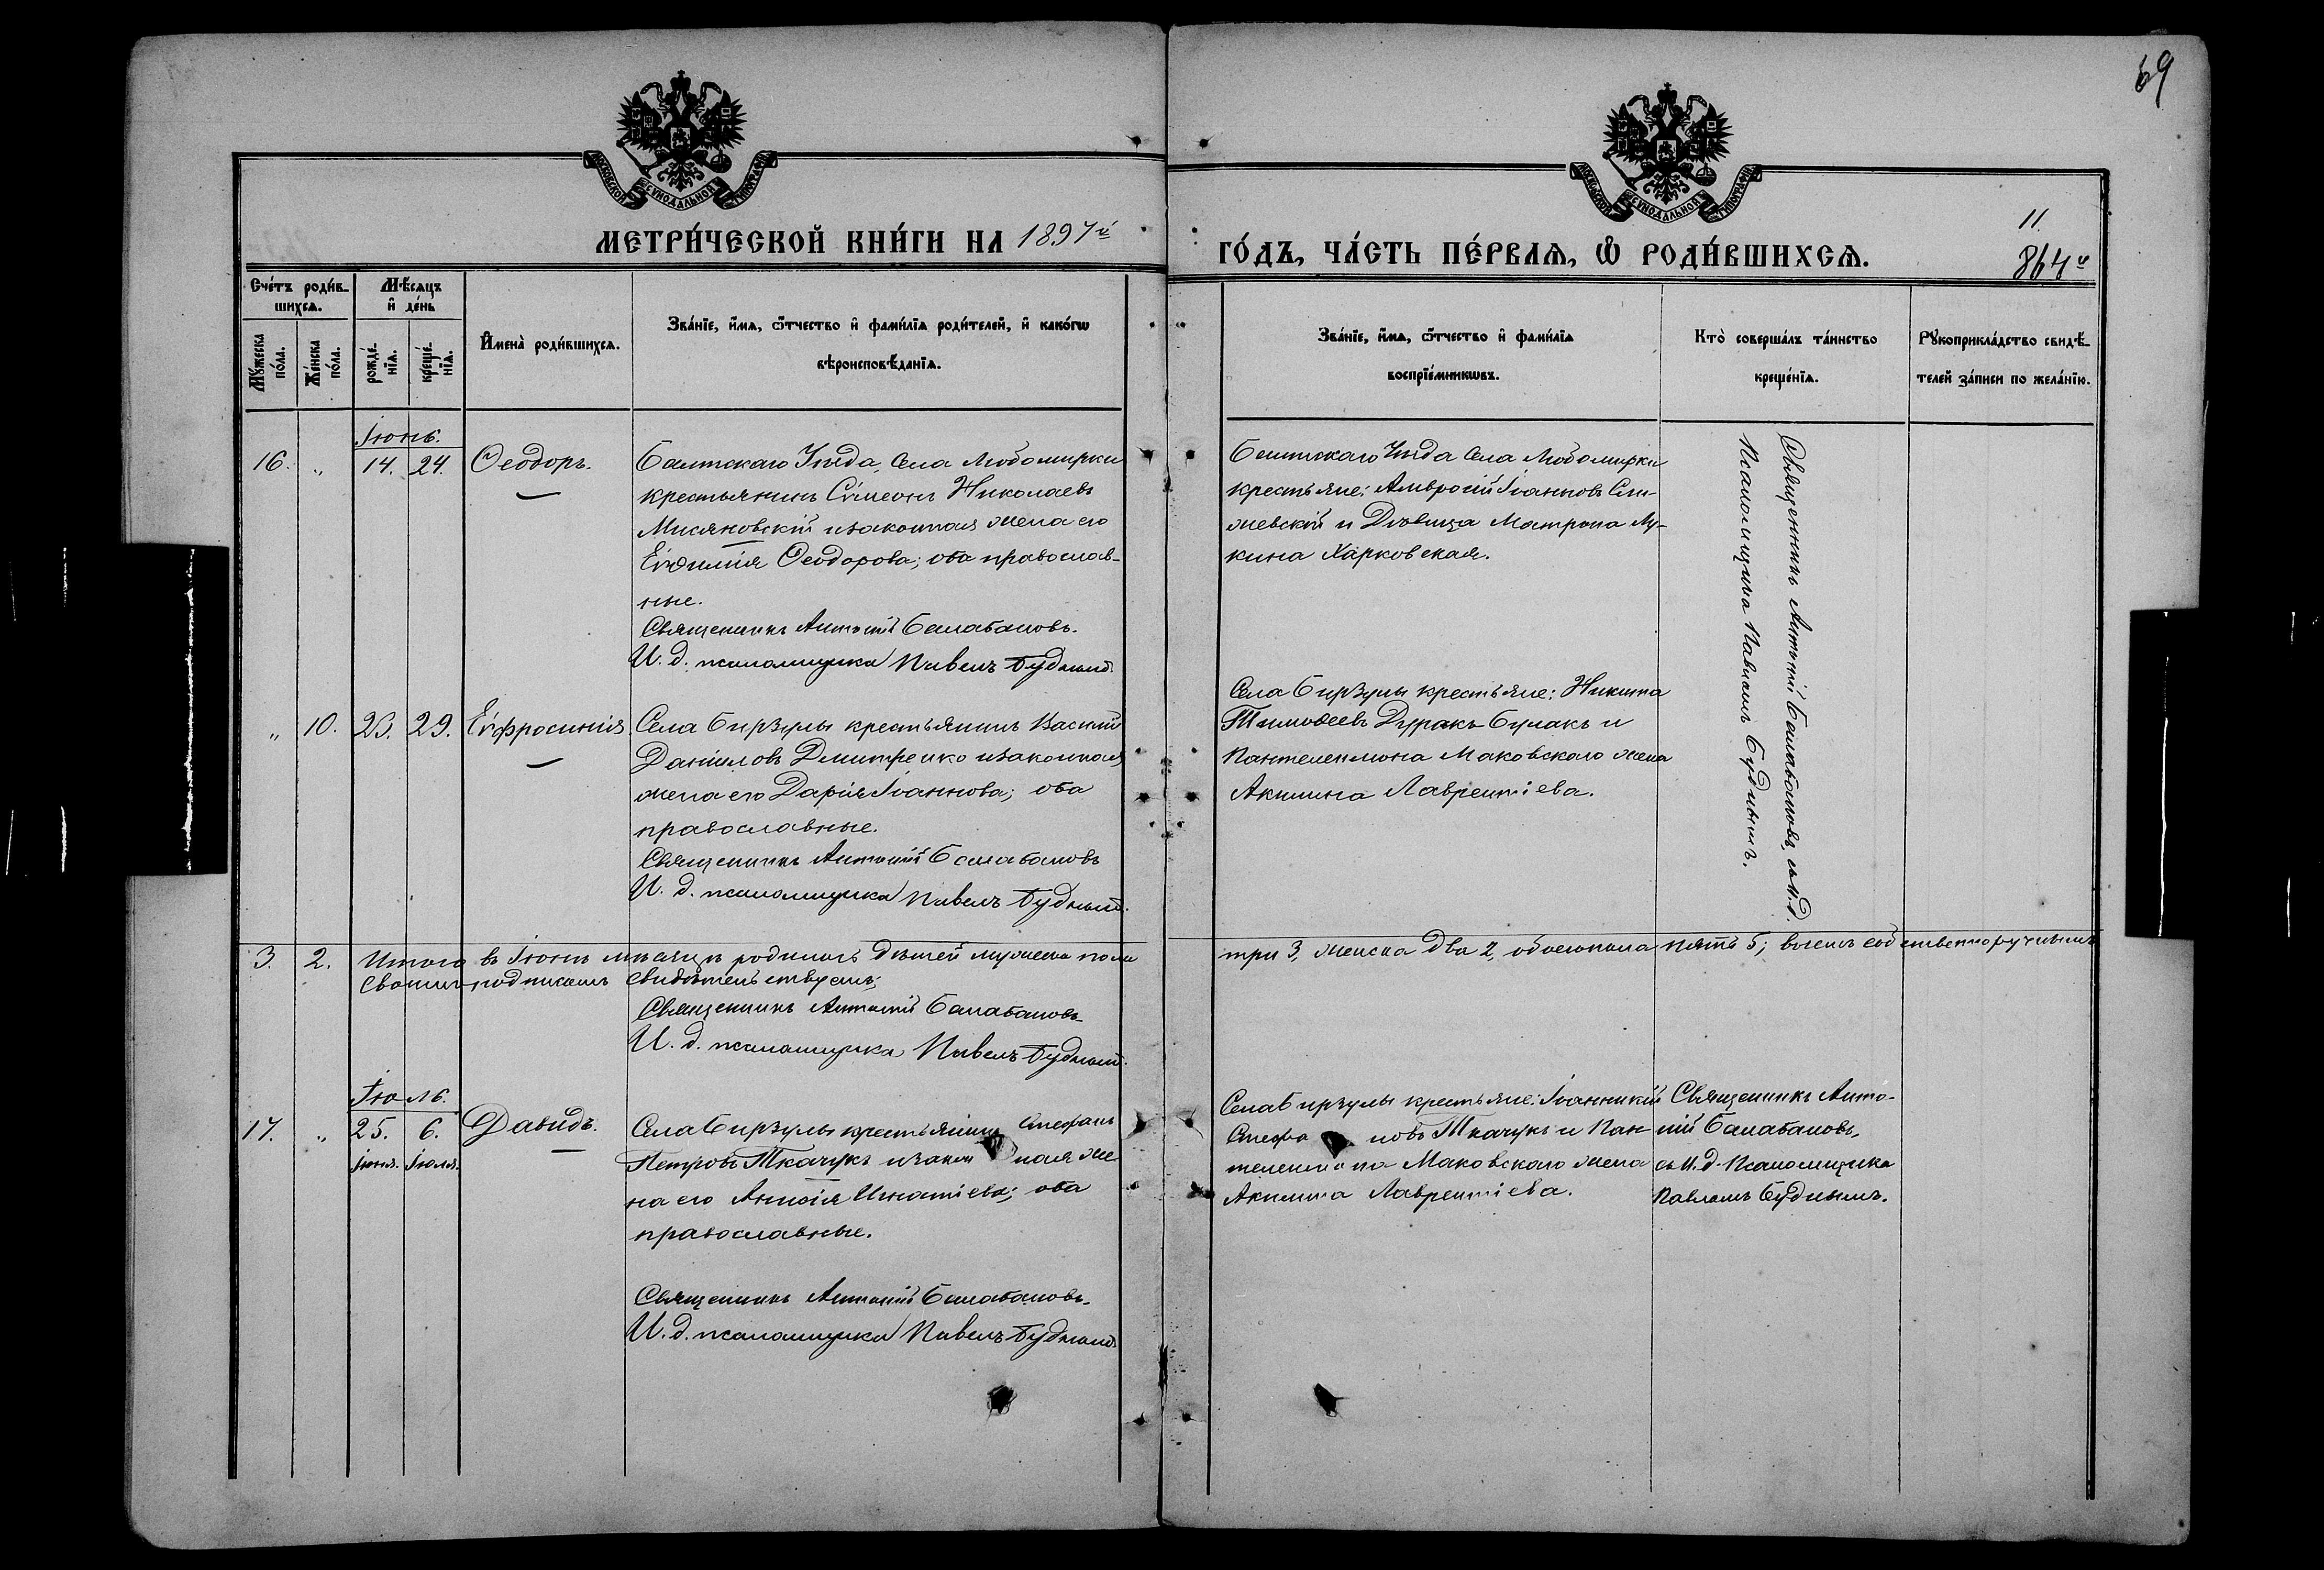 69
МОСКОВСКОЙ СѴНОДАЛЬНОЙ ТИПОГРАФІИ
МОСКОВСКОЙ СѴНОДАЛЬНОЙ ТИПОГРАФІИ
МЕТРИ́ЧЕСКОЙ КНИ́ГИ НА 1897й
ГО́ДЪ, ЧА́СТЬ ПЕ́РВАѦ, Ѽ РОДИ́ВШИХСѦ.
11.
864й
Сче́тъ роди́в-
шихсѧ.
Мѣ́сѧцъ
и҆ де́нь
Мꙋ́жеска
по́ла.
Же́нска
по́ла.
рожде́-
нїѧ.
креще́-
нїѧ.
И҆мена̀ роди́вшихсѧ.
Зва́нїе, и҆́мѧ, ѻ҆́тчество и҆ фами́лїѧ роди́телей, и҆ како́гѡ
вѣроисповѣ́данїѧ.
Зва́нїе, и҆́мѧ, ѻ҆́тчество и҆ фами́лїѧ
воспрїе́мникѡвъ.
Кто̀ соверша́лъ та́инство
креще́нїѧ.
Рꙋкоприкла́дство свидѣ́-
телей за́писи по жела́нїю.
Іюнь.
16. „ 14. 24. Ѳеодоръ.
Балтскаго Уѣзда, Села Любомирки
крестьянинъ Сѵмеонъ Николаевъ
Мисяновскій и законная жена его
Евѳимія Ѳеодорова; оба православ-
ные.
Священникъ Антоній Балабановъ.
И. д. псаломщика Павелъ Будный.
Балтскаго Уѣзда Села Любомирки
крестьяне: Амвросій Іоанновъ Сли-
жевскій и Дѣвица Матрона Лу-
кина Харковская.
Священникъ Антоній Балабановъ, съ И. д.
Псаломщика Павломъ Буднымъ.
„ 10. 23. 29. Евфросинія
Села Бирзулы крестьянинъ Василій
Даніиловъ Дмитренко и законная
жена его Дарія Іоаннова; оба
православные.
Священникъ Антоній Балабановъ
И. д. псаломщика Павелъ Будный.
Села Бирзулы крестьяне: Никита
Тимоѳеевъ Дурракъ-Булакъ и
Пантелеимона Маковскаго жена
Акилина Лаврентіева.
3. 2. Итого в Іюнѣ мѣсяцѣ родилось дѣтей мужеска пола
три 3, женска два 2, обоего пола пять 5; въ чемъ собственноручнымъ
своимъ подписомъ свидѣтельствуемъ;
Священникъ Антоній Балабановъ
И. д. псаломщика Павелъ Будный.
Іюль.
17. „ 25. 6. Давидъ.
Іюня. Іюля.
Села Бирзулы крестьянинъ Стефанъ
Петровъ Ткачукъ и законная же
на его Анисія Игнатіева; оба
православные.
Священникъ Антоній Балабановъ.
И. д. псаломщика Павелъ Будный
Села Бирзулы крестьяне: Іоанникій
Стефановъ Ткачукъ и Пан-
телеимона Маковскаго жена
Акилина Лаврентіева.
Священникъ Анто-
ній Балабановъ,
съ И. д. Псаломщика
Павломъ Буднымъ.